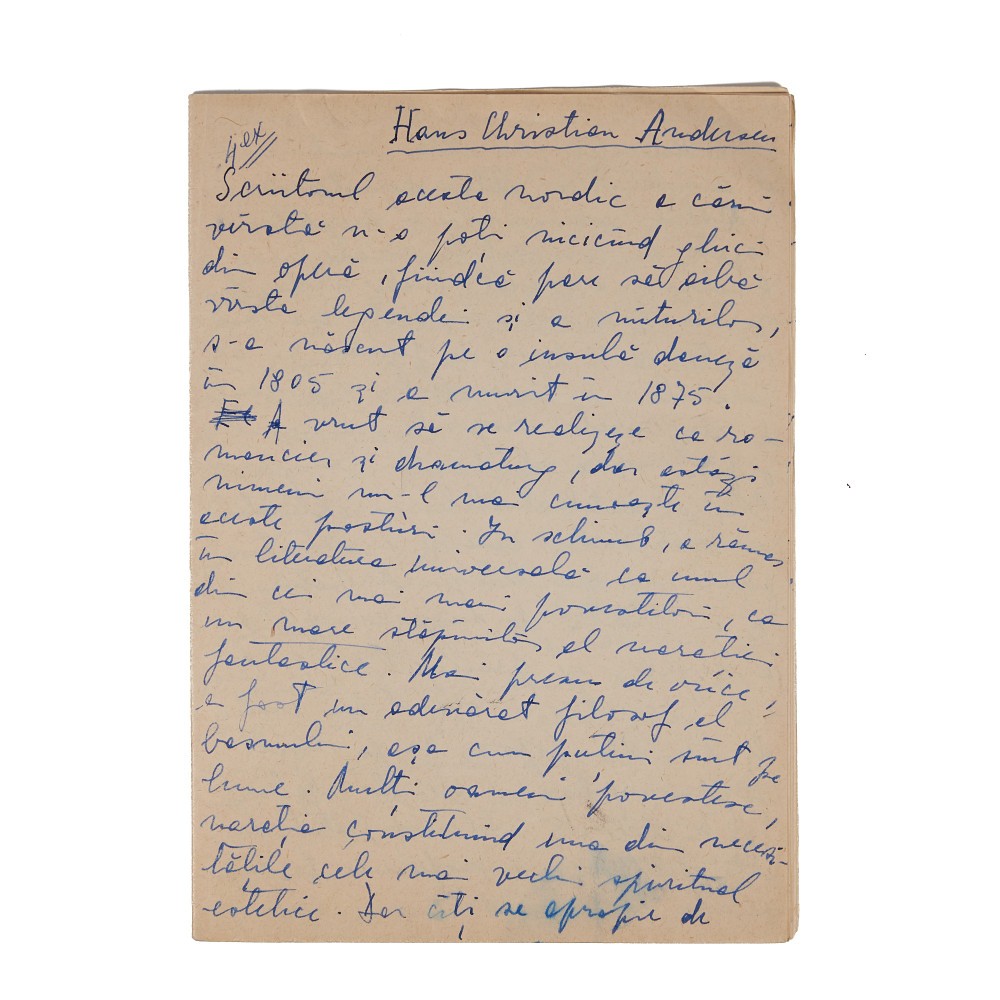 Hans Christian Andersen
4 ex
Scriitorul acesta nordic a cărui
vîrstă n-o poți nicicînd ghici
din operă, fiindcă pare să aibă
vîrsta legendei și a miturilor,
s-a născut pe o insulă daneză
în 1805 și a murit în 1875.
A vrut să se realizeze ca ro-
mancier și dramaturg, dar astăzi
nimeni nu-l mai cunoaște în
aceste posturi. In schimb, a rămas
în literatura universală ca unul
din cei mai mari povestitori, ca
un mare stăpînitor al narației
fantastice. Mai presus de orice,
a fost un adevărat filosof al
basmului, așa cum puțini sînt pe
lume. Mulți oameni povestesc,
narația constituind una din necesi-
tățile cele mai vechi spiritual
estetice. Dar cîți se apropie de